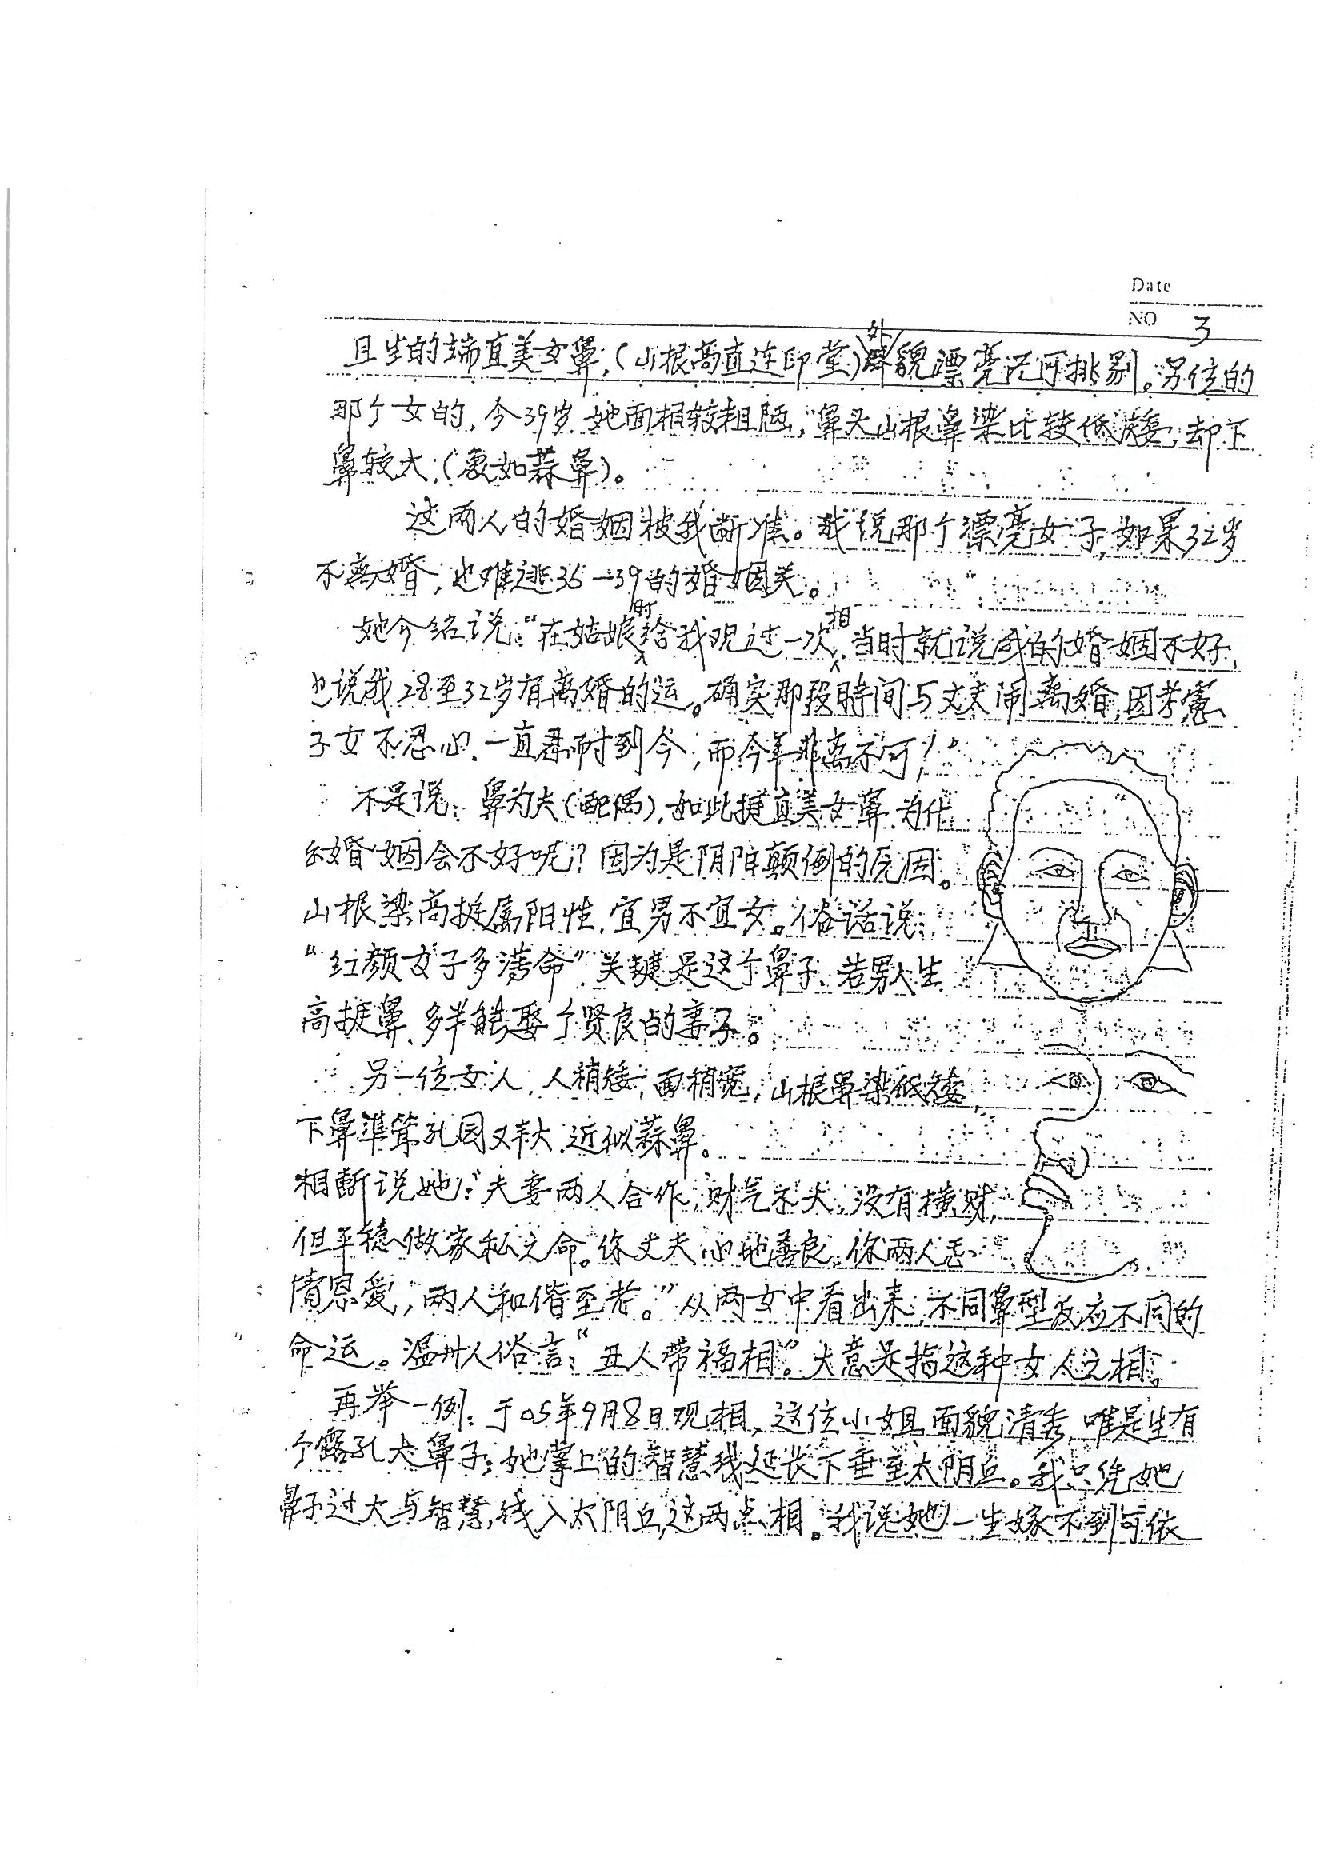 Date
NO 3
且生的端直美女鼻,(山根高直连印堂)外貌漂亮无可挑剔。另位的
那个女的,今39岁.她面相较粗陋,鼻头山根鼻梁比较低矮,却下
鼻较大,(象如蒜鼻)。
这两人的婚姻被我断准。我说那个漂亮女子,如果32岁
不离婚,也难逃35-39的婚姻关。
她介绍说:“在姑娘时给我观过一次相.当时就说我的婚姻不好,
也说我28至32岁有离婚的运。确实那段時间与丈夫闹离婚,因考虑
子女不忍心.一直忍耐到今,而今年非离不可!”
不是说:鼻为夫(配偶),如此挺直美女鼻.为什
么婚姻会不好呢?因为是阴阳颠倒的原因。
山根梁高挺属阳性,宜男不宜女。俗话说:
“红颜女子多薄命”关键是这个鼻子.若男人生
高挺鼻.多半能娶个贤良的妻子。
另一位女人,人稍矮,面稍宽,山根鼻梁低矮,
下鼻準常孔园又丰大.近似蒜鼻。
相断说她:“夫妻两人合作,财气不大,没有横财,
但平穩做家私之命。你丈夫心地善良.你两人
恩爱,两人和偕至老。”从两女中看出来,不同鼻型反应不同的
命运。温州人俗言:“丑人带福相”。大意是指这种女人之相。
再举一例:于05年9月8日观相,这位小姐面貌清秀,唯是生有
个露孔大鼻子;她掌上的智慧线延长下垂至太阴丘。我只凭她
鼻子过大与智慧线入太阴丘,这两点相。我说她一生嫁不到可依